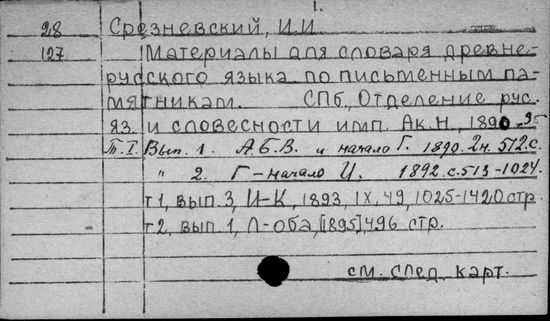 1.
28 Срезневский, И.И
127 Материалы для словаря древне-
русского языка по письменным па-
мятникам. СПб, Отделение рус.
яз. и словесности имп. Ак.Н, 1890-95
Т.I. Вып. 1. А.Б.В. и начало Г. 1890. 2н. 512.с.
" 2. Г-начало И. 1892. с. 513-1024.
т 1, вып. 3, И-К, 1893, IX, 49, 1025-1420 стр.
т 2, вып. 1, Л-оба, [1895] 496 стр.
см. спец. карт.